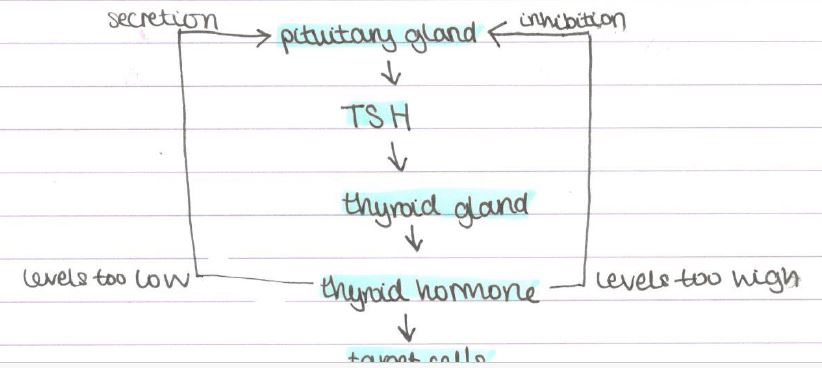 secretion
pituitary gland
inhibition
TSH
thyroid gland
levels too low
thyroid hormone
levels too high
target cells